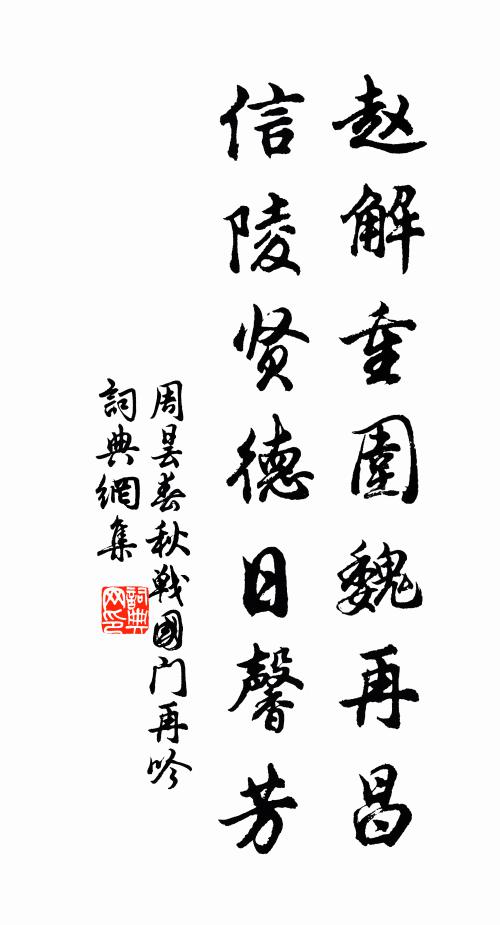 赵解重圍魏再昌
信陵贤德日馨芳
周昙春秋戦國门再吟
詞典網集
詞典
网印